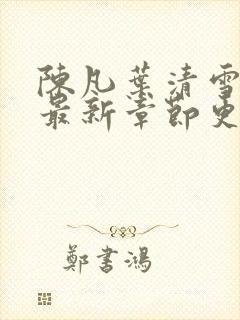 陳凡葉清雪
最新章節更
鄭書鴻